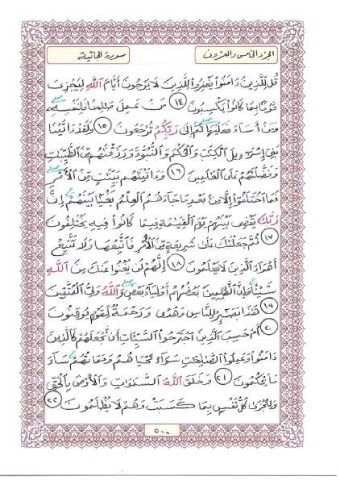 الجزء الخامس والعشرون
سورة الجاثية
قُل لِّلَّذِينَ ءَامَنُوا۟ يَغْفِرُوا۟ لِلَّذِينَ لَا يَرْجُونَ أَيَّامَ ٱللَّهِ لِيَجْزِىَ
قَوْمًۢا بِمَا كَانُوا۟ يَكْسِبُونَ ١٤ مَنْ عَمِلَ صَٰلِحًا فَلِنَفْسِهِۦ
وَمَنْ أَسَآءَ فَعَلَيْهَا ثُمَّ إِلَىٰ رَبِّكُمْ تُرْجَعُونَ ١٥ وَلَقَدْ ءَاتَيْنَا
بَنِىٓ إِسْرَٰٓءِيلَ ٱلْكِتَٰبَ وَٱلْحُكْمَ وَٱلنُّبُوَّةَ وَرَزَقْنَٰهُم مِّنَ ٱلطَّيِّبَٰتِ
وَفَضَّلْنَٰهُمْ عَلَى ٱلْعَٰلَمِينَ ١٦ وَءَاتَيْنَٰهُم بَيِّنَٰتٍ مِّنَ ٱلْأَمْرِ
فَمَا ٱخْتَلَفُوٓا۟ إِلَّا مِنۢ بَعْدِ مَا جَآءَهُمُ ٱلْعِلْمُ بَغْيًۢا بَيْنَهُمْ إِنَّ
رَبَّكَ يَقْضِى بَيْنَهُمْ يَوْمَ ٱلْقِيَٰمَةِ فِيمَا كَانُوا۟ فِيهِ يَخْتَلِفُونَ
١٧ ثُمَّ جَعَلْنَٰكَ عَلَىٰ شَرِيعَةٍ مِّنَ ٱلْأَمْرِ فَٱتَّبِعْهَا وَلَا تَتَّبِعْ
أَهْوَآءَ ٱلَّذِينَ لَا يَعْلَمُونَ ١٨ إِنَّهُمْ لَن يُغْنُوا۟ عَنكَ مِنَ ٱللَّهِ
شَيْـًٔا وَإِنَّ ٱلظَّٰلِمِينَ بَعْضُهُمْ أَوْلِيَآءُ بَعْضٍ وَٱللَّهُ وَلِىُّ ٱلْمُتَّقِينَ
١٩ هَٰذَا بَصَٰٓئِرُ لِلنَّاسِ وَهُدًى وَرَحْمَةٌ لِّقَوْمٍ يُوقِنُونَ
٢٠ أَمْ حَسِبَ ٱلَّذِينَ ٱجْتَرَحُوا۟ ٱلسَّيِّـَٔاتِ أَن نَّجْعَلَهُمْ كَٱلَّذِينَ
ءَامَنُوا۟ وَعَمِلُوا۟ ٱلصَّٰلِحَٰتِ سَوَآءً مَّحْيَاهُمْ وَمَمَاتُهُمْ سَآءَ
مَا يَحْكُمُونَ ٢١ وَخَلَقَ ٱللَّهُ ٱلسَّمَٰوَٰتِ وَٱلْأَرْضَ بِٱلْحَقِّ
وَلِتُجْزَىٰ كُلُّ نَفْسٍۭ بِمَا كَسَبَتْ وَهُمْ لَا يُظْلَمُونَ ٢٢
٥٠٠